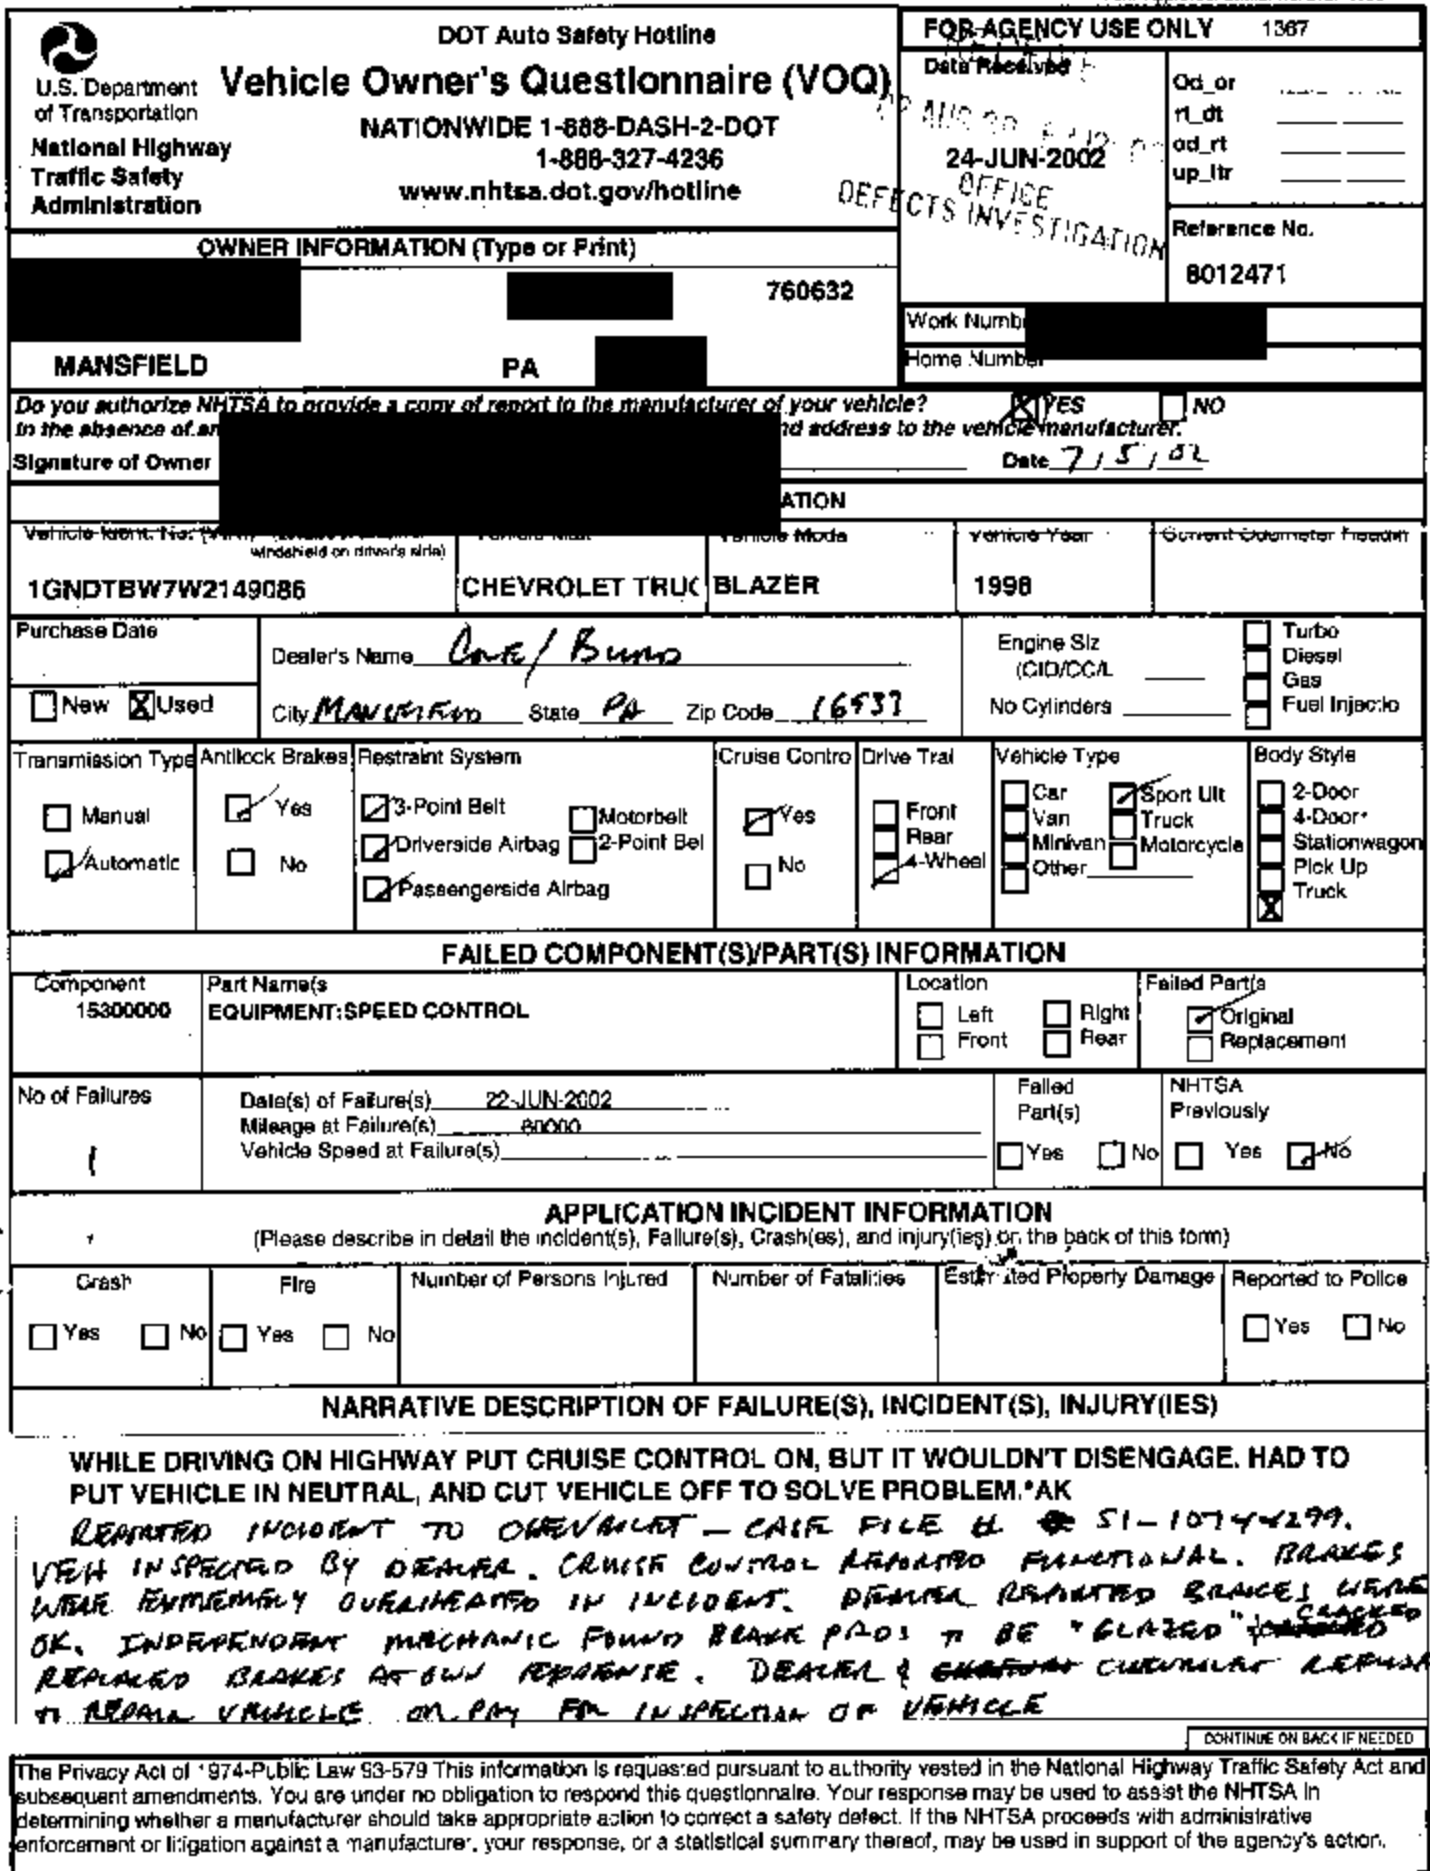 DOT Auto Safety Hotline
U.S. Department
of Transportation
National Highway
Traffic Safety
Administration
Vehicle Owner's Questionnaire (VOQ)
NATIONWIDE 1-888-DASH-2-DOT
1-888-327-4236
www.nhtsa.dot.gov/hotline
FOR AGENCY USE ONLY 1367
Date Received
24-JUN-2002
OFFICE
DEFECTS INVESTIGATION
Od_or
rt_dt
od_rt
up_ltr
Reference No.
8012471
OWNER INFORMATION (Type or Print)
760632
MANSFIELD PA
Work Numb
Home Number
Do you authorize NHTSA to provide a copy of report to the manufacturer of your vehicle? YES NO
In the absence of an nd address to the vehicle manufacturer.
Signature of Owner Date 7/5/02
ATION
Vehicle Ident. No.
windshield on driver's side)
Vehicle Mode
Vehicle Year
Current Odometer Readin
1GNDTBW7W2149086 CHEVROLET TRUC BLAZER 1998
Purchase Date
New Used
Dealer's Name
City MANSFIELD State PA Zip Code
Engine Siz
(CID/CC/L
No Cylinders
Turbo
Diesel
Gas
Fuel Injectio
Transmission Type
Manual
Automatic
Antilock Brakes
Yes
No
Restraint System
3-Point Belt Motorbelt
Driverside Airbag 2-Point Bel
Passengerside Airbag
Cruise Contro
Yes
No
Drive Trai
Front
Rear
4-Wheel
Vehicle Type
Car Sport Ult
Van Truck
Minivan Motorcycle
Other
Body Style
2-Door
4-Door
Stationwagon
Pick Up
Truck
FAILED COMPONENT(S)/PART(S) INFORMATION
Component
15300000
Part Name(s
EQUIPMENT:SPEED CONTROL
Location
Left Right
Front Rear
Failed Part(s
Original
Replacement
No of Failures
1
Date(s) of Failure(s) 22-JUN-2002
Mileage at Failure(s) 60000
Vehicle Speed at Failure(s)
Failed
Part(s)
Yes No
NHTSA
Previously
Yes No
APPLICATION INCIDENT INFORMATION
(Please describe in detail the incident(s), Failure(s), Crash(es), and injury(ies) on the back of this form)
Crash
Yes No
Fire
Yes No
Number of Persons Injured
Number of Fatalities
Estimated Property Damage
Reported to Police
Yes No
NARRATIVE DESCRIPTION OF FAILURE(S), INCIDENT(S), INJURY(IES)
WHILE DRIVING ON HIGHWAY PUT CRUISE CONTROL ON, BUT IT WOULDN'T DISENGAGE. HAD TO
PUT VEHICLE IN NEUTRAL, AND CUT VEHICLE OFF TO SOLVE PROBLEM.*AK
REPORTED INCIDENT TO CHEVROLET - CASE FILE # 51-10744299.
VEH INSPECTED BY DEALER. CRUISE CONTROL REPORTED FUNCTIONAL. BRAKES
WERE EXTREMELY OVERHEATED IN INCIDENT. DEALER REPORTED BRAKES WERE
OK. INDEPENDENT MECHANIC FOUND BRAKE PADS TO BE "GLAZED" CRACKED
REPLACED BRAKES AT OWN EXPENSE. DEALER & CHEVROLET REFUSE
TO REPAIR VEHICLE OR PAY FOR INSPECTION OF VEHICLE
CONTINUE ON BACK IF NEEDED
The Privacy Act of 1974-Public Law 93-579 This information is requested pursuant to authority vested in the National Highway Traffic Safety Act and
subsequent amendments. You are under no obligation to respond this questionnaire. Your response may be used to assist the NHTSA in
determining whether a manufacturer should take appropriate action to correct a safety defect. If the NHTSA proceeds with administrative
enforcement or litigation against a manufacturer, your response, or a statistical summary thereof, may be used in support of the agency's action.